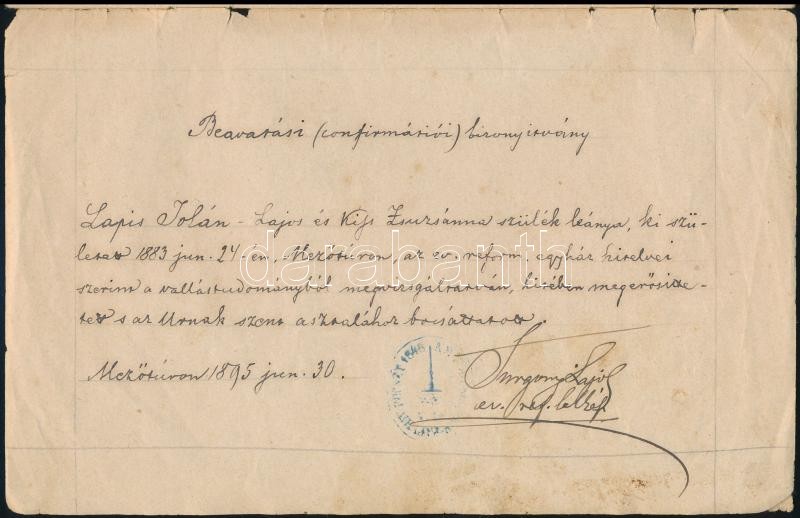 Beavatási (confirmátiói) bizonyitvány
Lapis Jolán – Lajos és Kiss Zsuzsánna szülék leánya, ki szü-
letett 1883 jun. 24-én, Mezőtúron, az ev. reform. egyház hitelvei
szerint a vallástudományból megvizsgáltatván, hitében megerősitte-
tett s az Urnak szent asztalához bocsáttatott.
Mezőtúron 1895 jun. 30.
Lajos
ev. ref. lelkész
darabanth